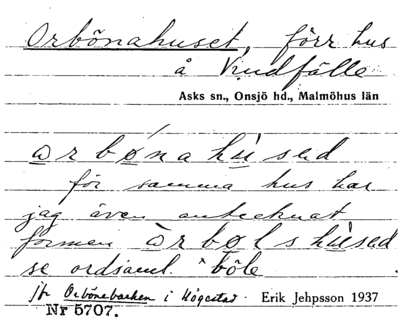 Orbönahuset, förr hus
å Vindfälle
Asks sn., Onsjö hd., Malmöhus län
arbønahused
för samma hus har
jag även antecknat
formen årbølshused
se ordsaml. böle
jfr Orbönebacken i Högestad. Erik Jehpsson 1937
Nr 5707.